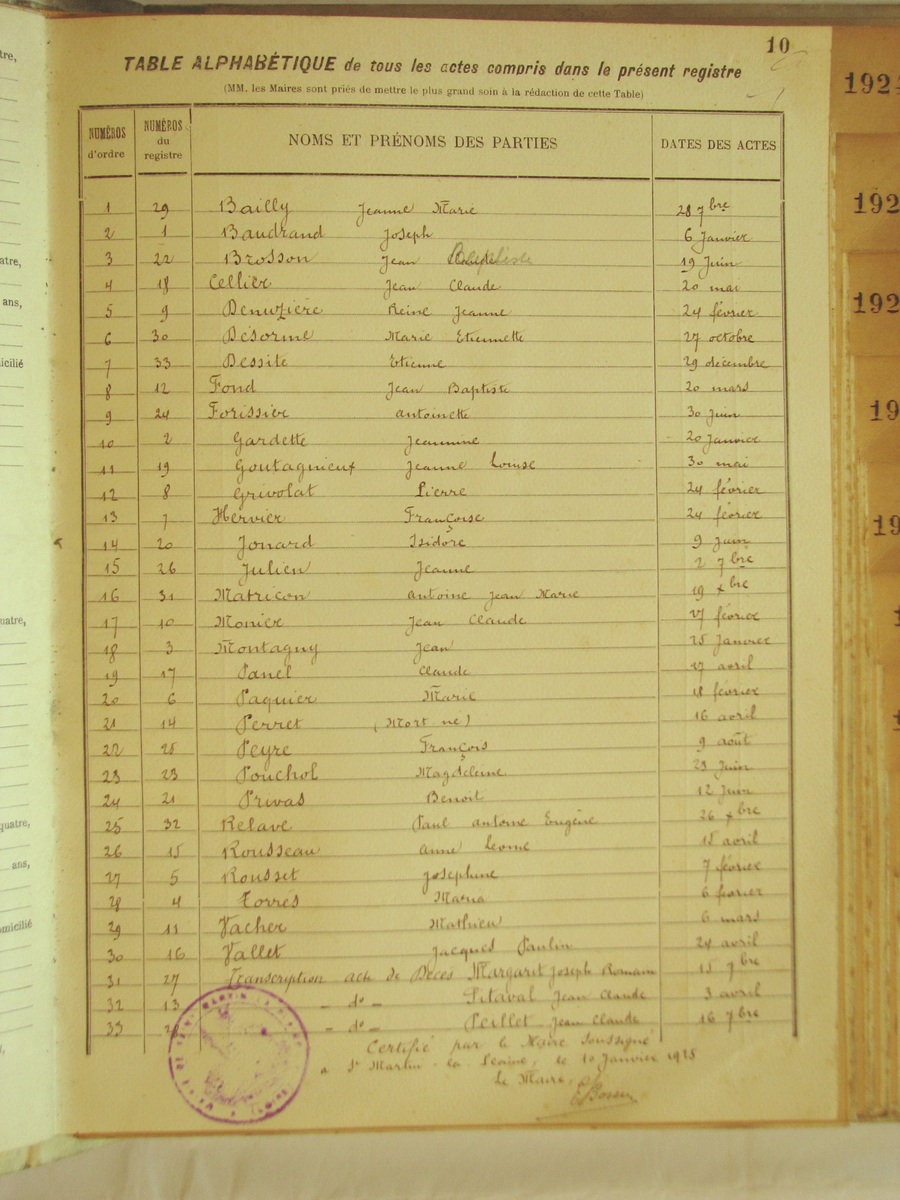 10
TABLE ALPHABÉTIQUE de tous les actes compris dans le présent registre
(MM. les Maires sont priés de mettre le plus grand soin à la rédaction de cette Table)
NUMÉROS d'ordre NUMÉROS du registre NOMS ET PRÉNOMS DES PARTIES DATES DES ACTES
1 29 Bailly Jeanne Marie 28 7bre
2 1 Baudrand Joseph 6 Janvier
3 22 Brosson Jean Baptiste 19 Juin
4 18 Cellier Jean Claude 20 mai
5 9 Denuzière Reine Jeanne 24 février
6 30 Désorme Marie Etiennette 27 octobre
7 33 Dessite Etienne 29 décembre
8 12 Fond Jean Baptiste 20 mars
9 24 Forissier antoinette 30 Juin
10 2 Gardette Jeannine 20 Janvier
11 19 Goutagnieux Jeanne Louise 30 mai
12 8 Grivolat Pierre 24 février
13 7 Hervier Françoise 24 février
14 20 Jouard Isidore 9 Juin
15 26 Julien Jeanne 2 7bre
16 31 Matricon antoine Jean Marie 19 xbre
17 10 Monier Jean Claude 27 février
18 3 Montagny Jean 25 Janvier
19 17 Panel Claude 27 avril
20 6 Paquier Marie 18 février
21 14 Perret (Mort né) 16 avril
22 25 Peyre François 9 août
23 23 Pouchol Magdeleine 23 Juin
24 21 Privas Benoit 12 Juin
25 32 Relave Paul antoine Eugène 26 xbre
26 15 Rousseau anne Leonie 15 avril
27 5 Rousset Josephine 7 février
28 4 Torrés Maria 6 février
29 11 Vacher Mathieu 6 mars
30 16 Vallet Jacques Paulin 24 avril
31 27 Transcription acte de Décès Margarit Joseph Romain 15 7bre
32 13 - do - Pitaval Jean Claude 3 avril
33 28 - do - Peillet Jean Claude 16 7bre
Certifié par le Maire soussigné
a St Martin-la-Plaine, le 10 Janvier 1925
Le Maire,
tre,
atre,
ans,
icilié
uatre,
quatre,
ans,
omicilié
192
192
192
19
19